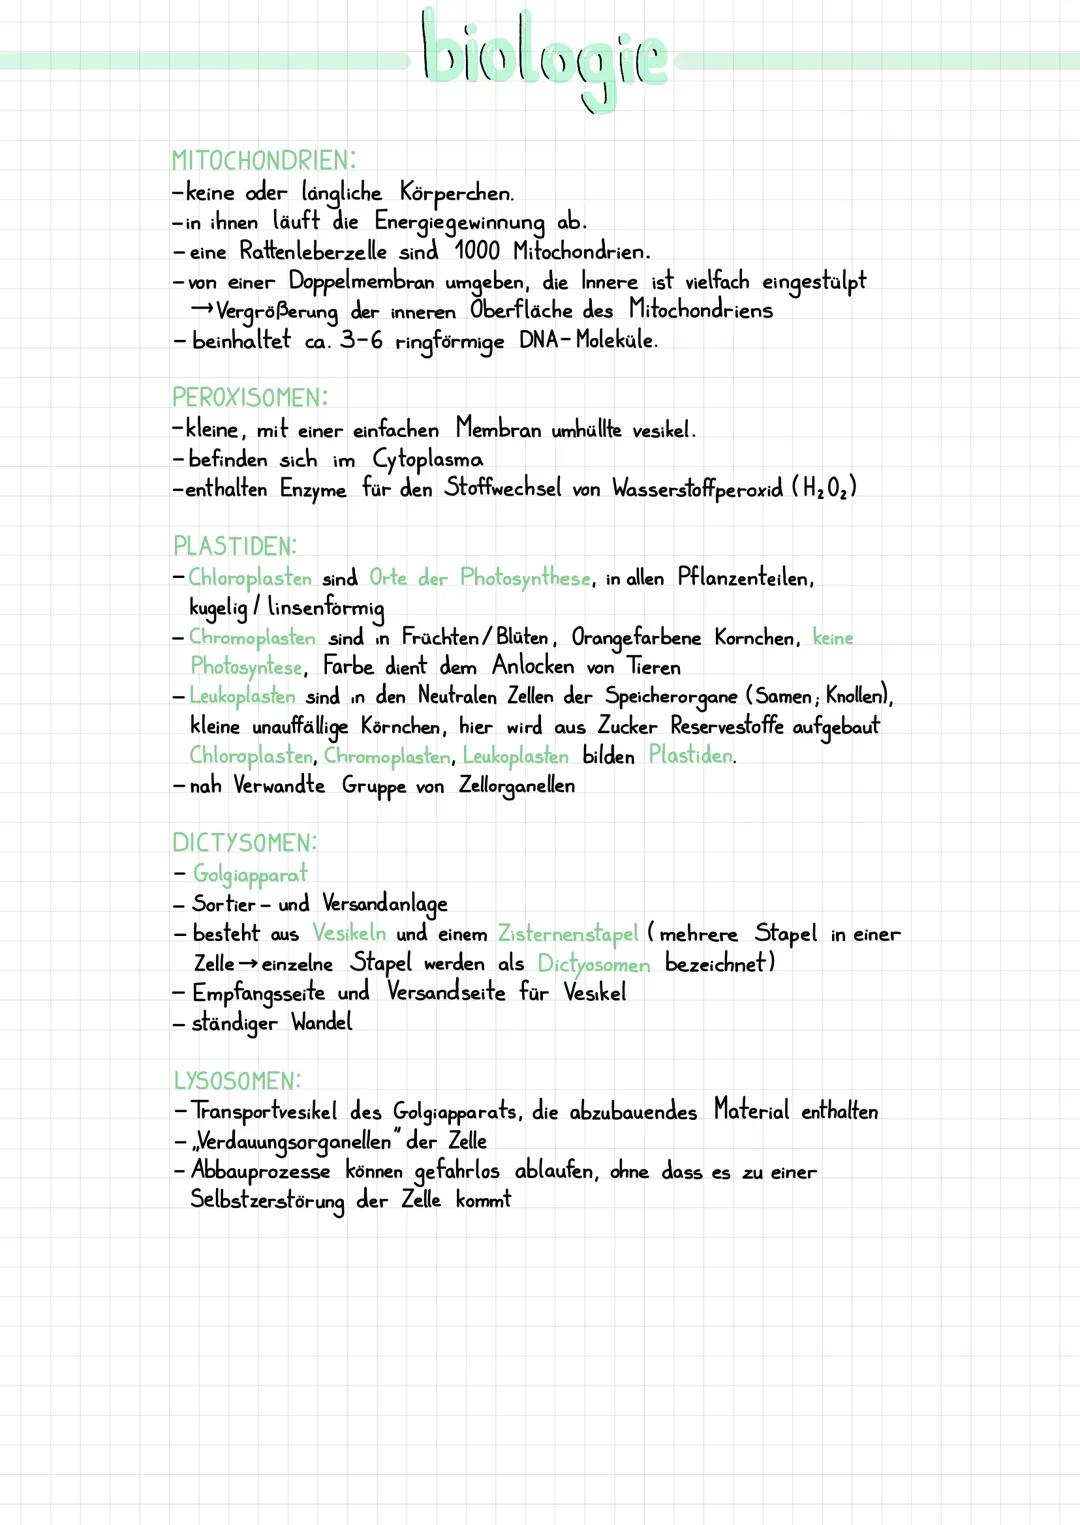 biologie
MITOCHONDRIEN:
-keine oder längliche Körperchen.
-in ihnen läuft die Energiegewinnung ab.
- eine Rattenleberzelle sind 1000 Mitochondrien.
- von einer Doppelmembran umgeben, die Innere ist vielfach eingestülpt
→ Vergrößerung der inneren Oberfläche des Mitochondriens
- beinhaltet ca. 3-6 ringförmige DNA-Moleküle.
PEROXISOMEN:
-kleine, mit einer einfachen Membran umhüllte vesikel.
- befinden sich im Cytoplasma
-enthalten Enzyme für den Stoffwechsel von Wasserstoffperoxid (H₂O₂)
PLASTIDEN:
- Chloroplasten sind Orte der Photosynthese, in allen Pflanzenteilen,
kugelig / linsenförmig
- Chromoplasten sind in Früchten/Blüten, Orangefarbene Kornchen, keine
Photosyntese, Farbe dient dem Anlocken von Tieren
- Leukoplasten sind in den Neutralen Zellen der Speicherorgane (Samen; Knollen),
kleine unauffällige Körnchen, hier wird aus Zucker Reservestoffe aufgebaut
Chloroplasten, Chromoplasten, Leukoplasten bilden Plastiden.
- nah Verwandte Gruppe von Zellorganellen
DICTYSOMEN:
- Golgiapparat
- Sortier- und Versandanlage
- besteht aus Vesikeln und einem Zisternenstapel (mehrere Stapel in einer
Zelle → einzelne Stapel werden als Dictyosomen bezeichnet)
- Empfangsseite und Versandseite für Vesikel
- ständiger Wandel
LYSOSOMEN:
- Transportvesikel des Golgiapparats, die abzubauendes Material enthalten
- „Verdauungsorganellen" der Zelle
- Abbauprozesse können gefahrlos ablaufen, ohne dass es zu einer
Selbstzerstörung der Zelle kommt